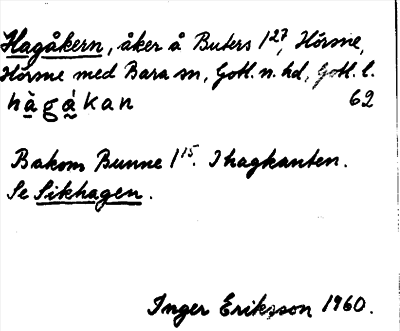 Hagåkern, åker å Buters 1²⁷, Hörsne,
Hörsne med Bara sn, Gotl. n. hd, Gotl. l.
hàgákan 62
Bakom Bunne 1¹⁵. I hagkanten.
Se Sikhagen.
Inger Eriksson 1960.